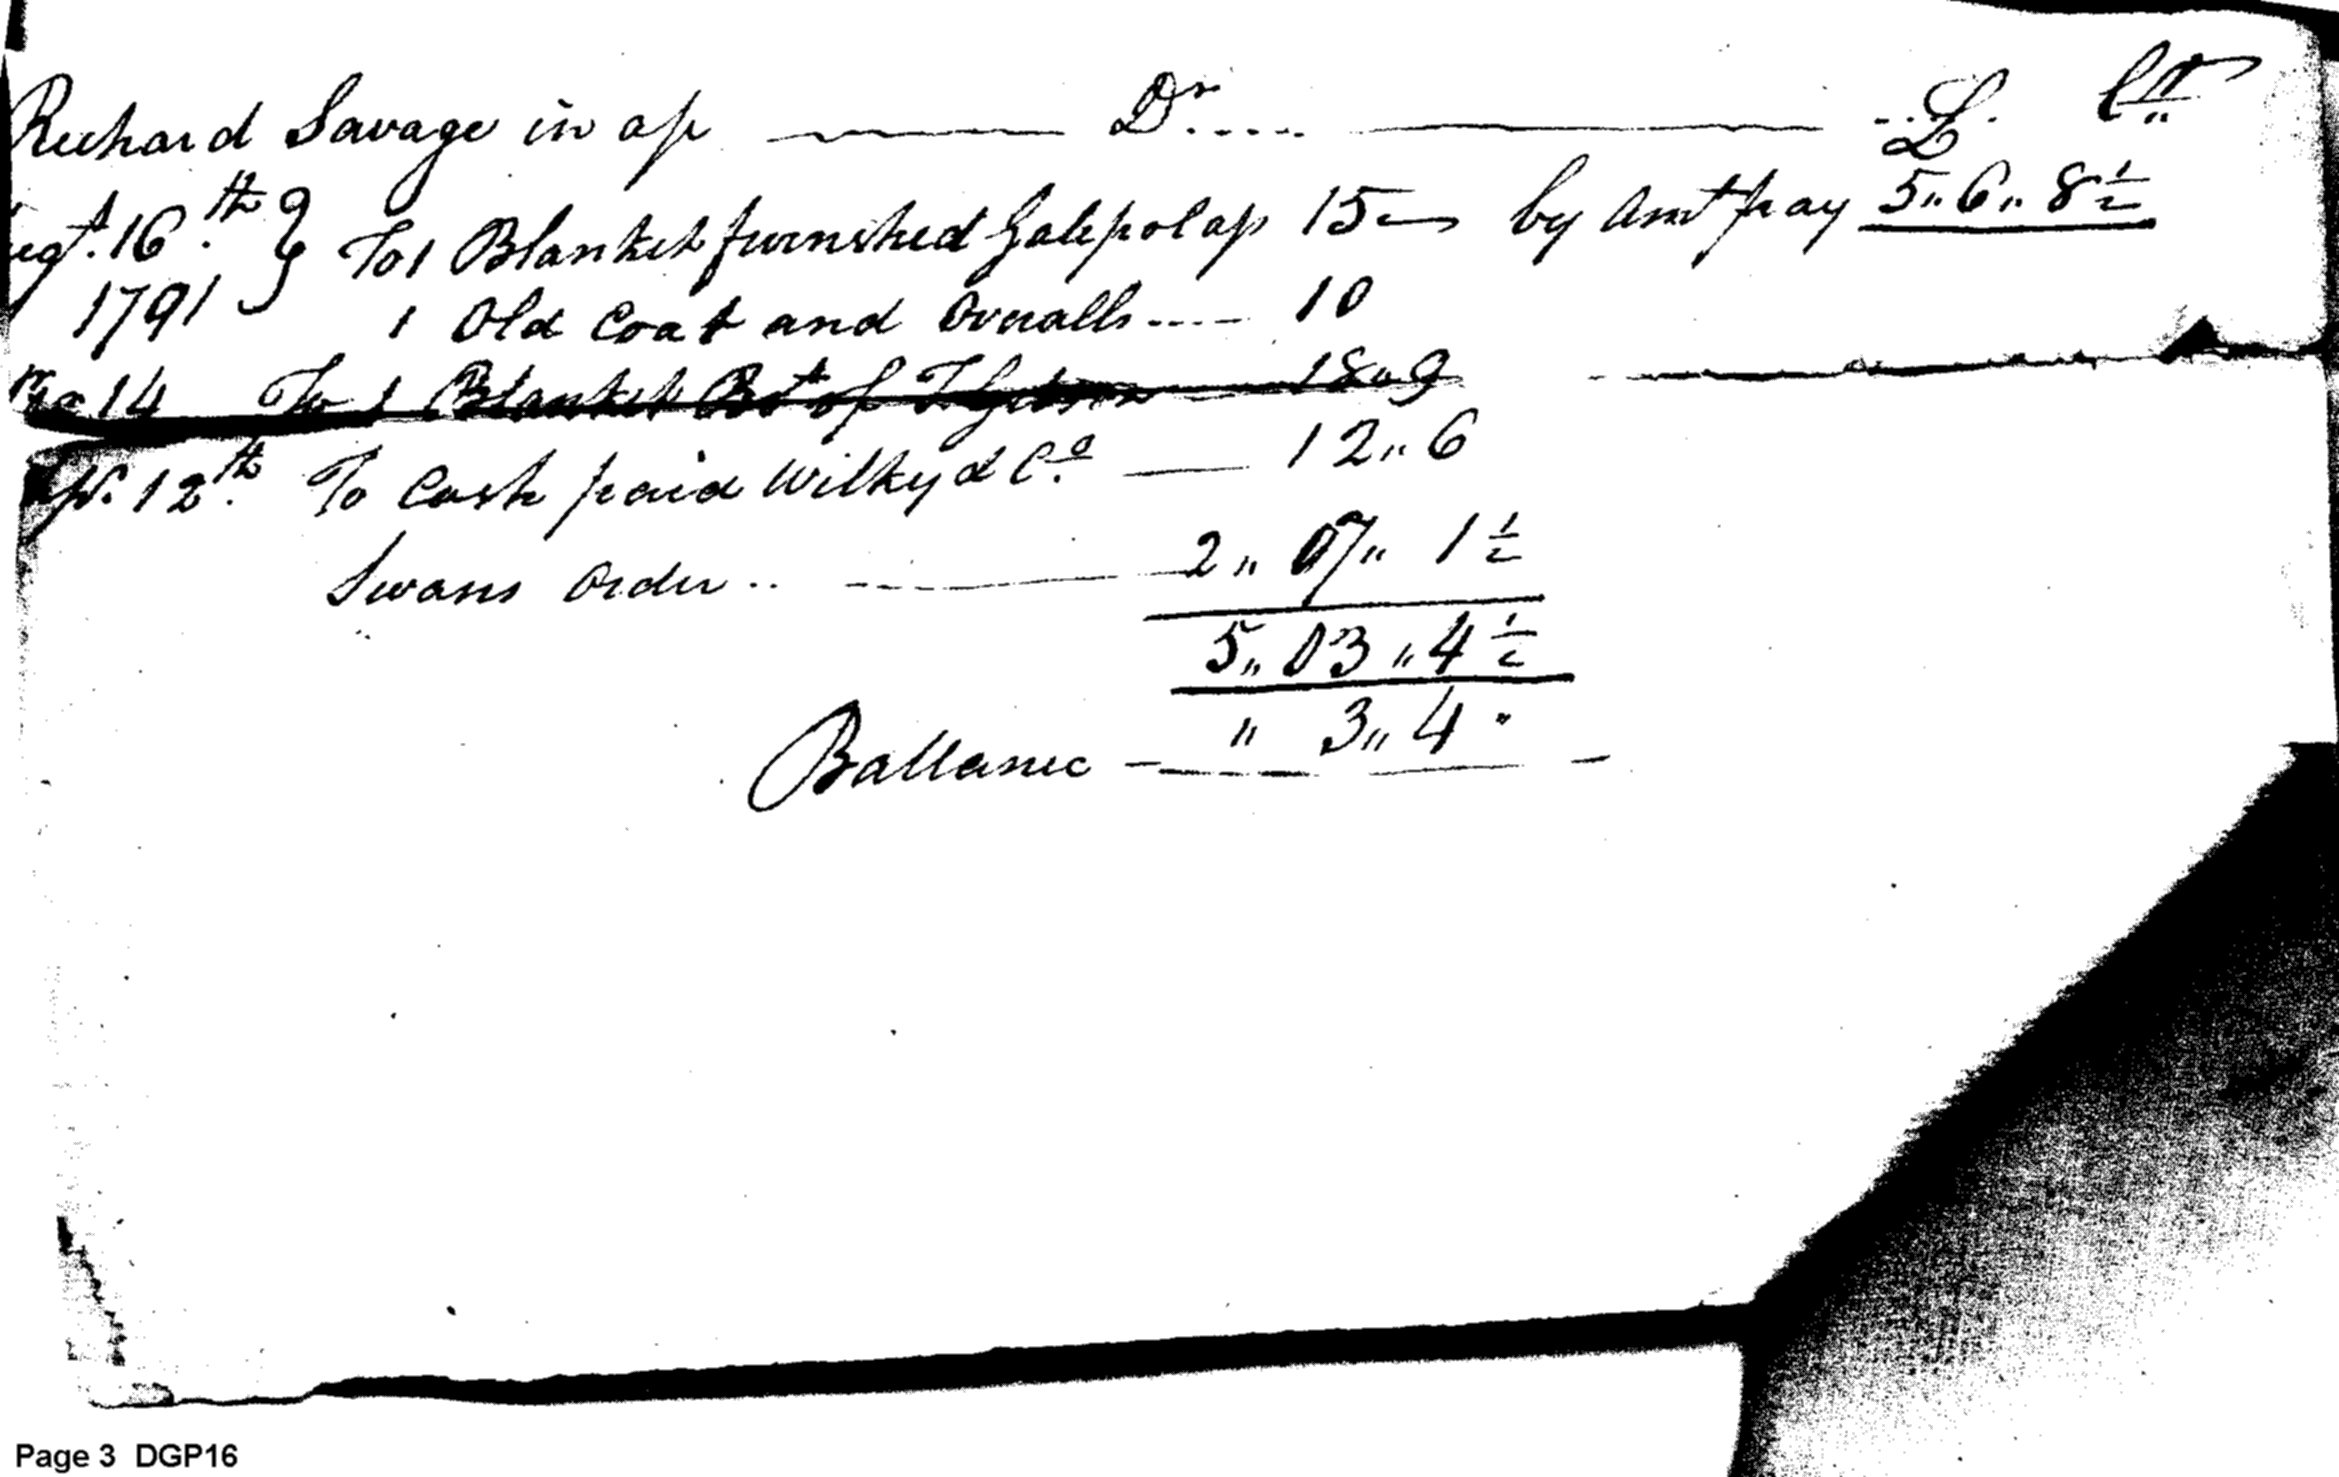 Richard Savage in ap Dr.... L. Cr
Augt. 16th } To 1 Blanket furnished Galepolap 15 by Amt pay 5,, 6,, 8 1/2
1791 1 Old Coat and Overalls .... 10
14 To 1 Blanket Bot of 18,, 9
12th. To Cash paid Wilky & Co. 12,, 6
Swans Order .. 2,, 07,, 1 1/2
5,, 03,, 4 1/2
Ballance ,, 3,, 4 "
Page 3 DGP16